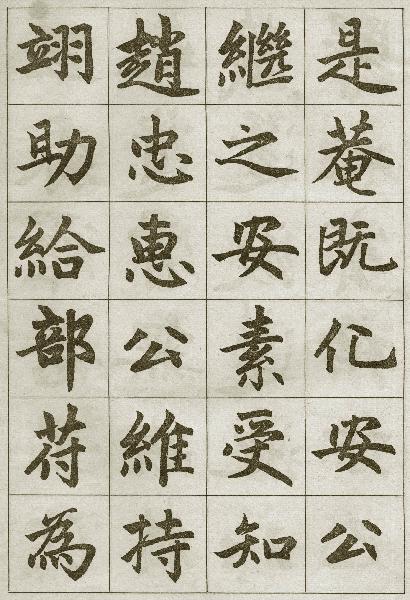 是菴既化安公
繼之安素受知
趙忠惠公維持
翊助給部符為